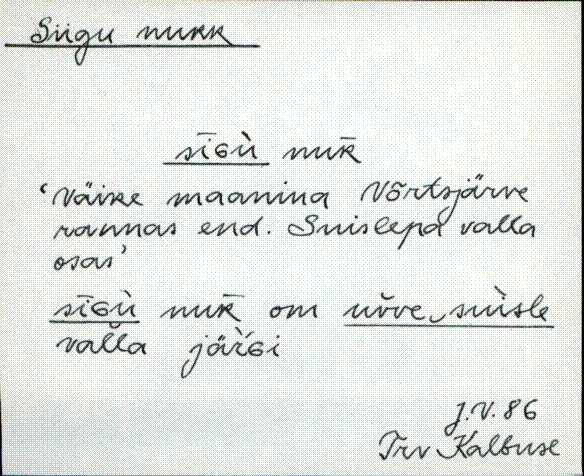 Siigu nukk
sīGù nuk̄
'Väike maanina Võrtsjärve
rannas end. Suislepa valla
osas'
sīGù nuk̄ om uǒve‿suìsle
valla järGi
J.V. 86
Trv Kalbuse